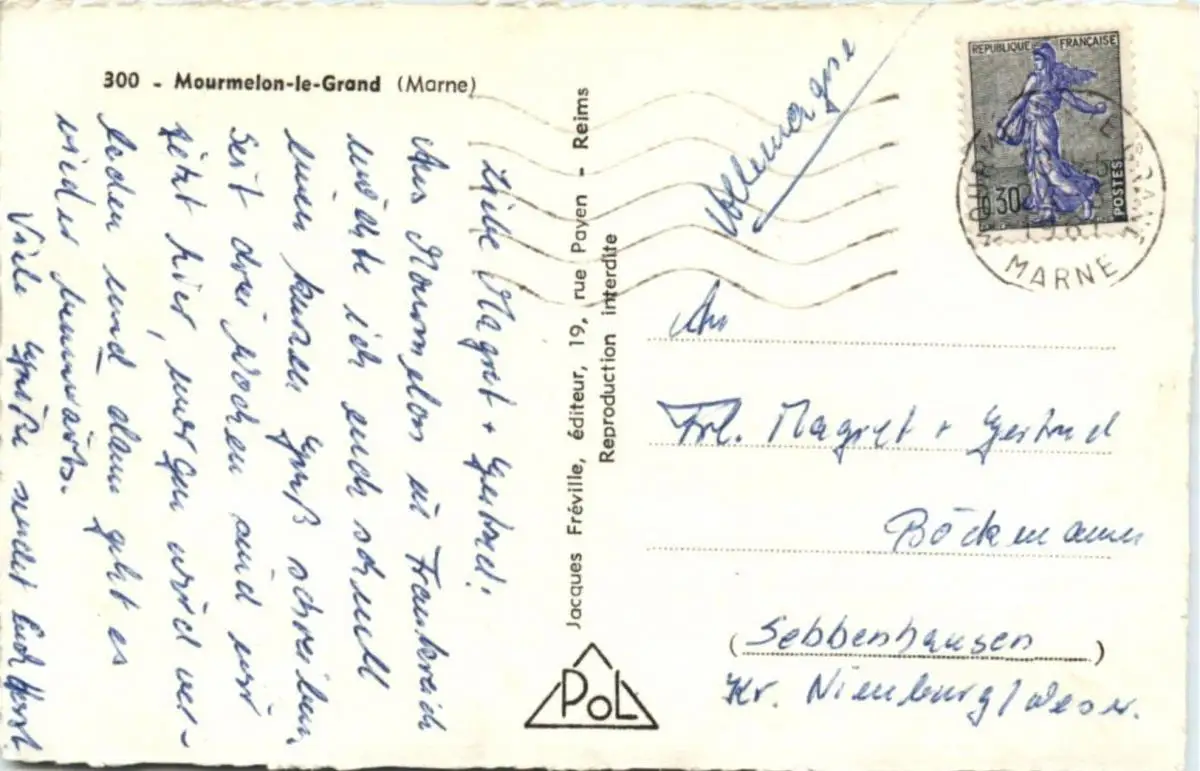 300 - Mourmelon-le-Grand (Marne)
Liebe Magret + Gertrud!
Aus Mourmelon in Frankreich
möchte ich euch schnell
einen kurzen Gruß schreiben,
Seit drei Wochen sind wir
jetzt hier, morgen wird ver-
laden und dann geht es
wieder heimwärts.
Viele Grüße sendet Euch Horst
Jacques Fréville, éditeur, 19, rue Payen - Reims
Reproduction interdite
PoL
Allemagne
REPUBLIQUE FRANÇAISE
0,30
POSTES
MOURMELON LE GRAND
1961
MARNE
An
Frl. Magret + Gertrud
Böckmann
(Sebbenhausen)
Kr. Nienburg/Weser.